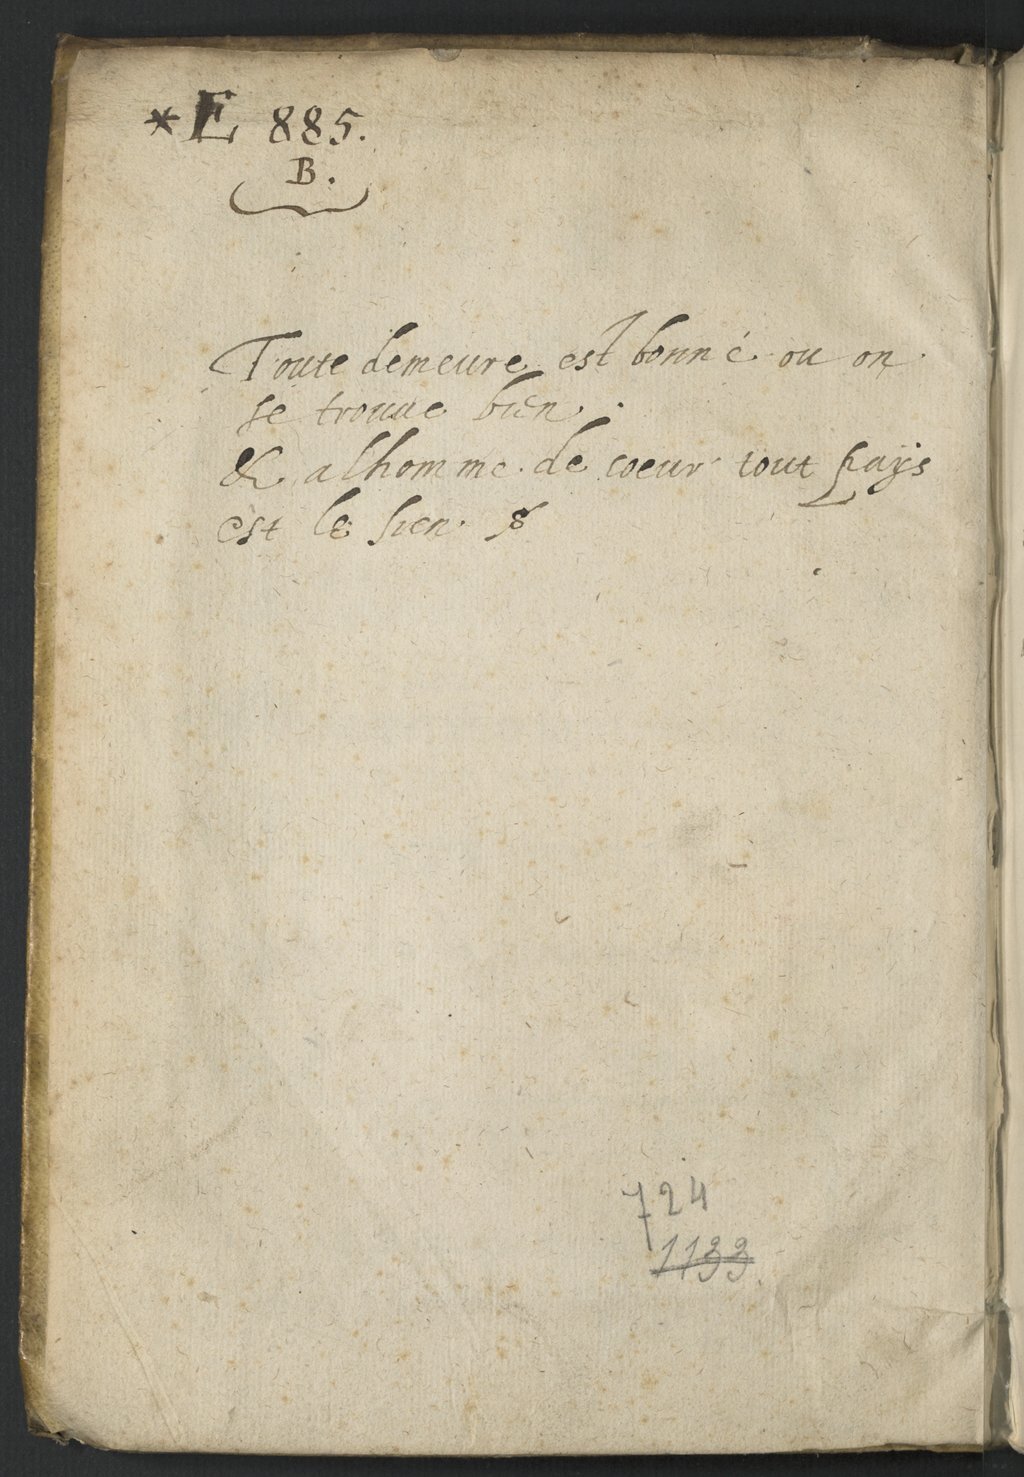 *E 885.
B.
Toute demeure est bonne ou on
se trouue bien.
& alhomme de coeur tout pays
est le sien.
724
1133